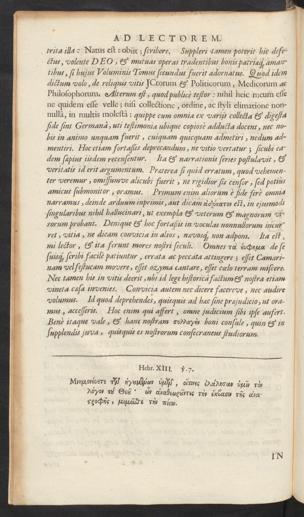 AD LECTOREM.
trita illa: Natus est: obiit: scribere. Suppleri tamen poterit hic defe-
ctus, volente DEO, & mutuas operas tradentibus bonis patriæq; aman-
tibus, si hujus Voluminis Tomus secundus fuerit adornatus. Quod idem
dictum volo, de reliquis vitis JCtorum & Politicorum, Medicorum ac
Philosophorum exterorum est, quod publicè testor: nihil heic meum esse
ne quidem esse velle; nisi collectione, ordine, ac styli elimatione non-
nullâ, in multis molestâ: quippe cum omnia ex variis collecta & digesta
fide sint Germanâ, uti testimonia ubique copiosè adducta docent, nec no-
bis in animo unquam fuerit, cuiquam quicquam admetiri, nedum ad-
mentiri. Hoc etiam fortassis deprecandum, ne vitio vertatur; sicubi ea-
dem sæpius iisdem recensentur. Ita & narrationis series postulavit, &
veritatis id erit argumentum. Præterea si quid erratum, quod vehemen-
ter veremur, omissumve alicubi fuerit; ne rigidior sis censor, sed potius
amicus submonitor, oramus. Primum enim aliorum è fide ferè omnia
narramus, deinde arduum inprimis, aut dicam ἀδύνατον est, in ejusmodi
singularibus nihil hallucinari, ut exempla & veterum & magnorum vi-
rorum probant. Denique & hoc fortassis in voculas nonnullorum incur-
ret, vitia, ne dicam convicia in alios, nævosq; non adponi. Ita est,
mi lector, & ita ferunt mores nostri seculi. Omnes τὰ ἐύφημα de se
suisq; scribi facilè patiuntur, errata ac peccata attingere; esset Camari-
nam vel sespitem movere, esset ἄσημα cantare, esset cælo terram miscere.
Nec tamen bis in vitio deerit, ubi id lege historicâ factum & nostra etiam
vineta cæsa invenies. Convicia autem nec dicere facere ve, nec audire
volumus. Id quod deprehendes, quisquis ad hæc sine præjudicio, ut ora-
mus, accesseris. Hoc enim qui affert, omne judicium sibi ipse aufert.
Benè itaque vale, & hanc nostram πολλαγὴν boni consule, quin & in
supplendis juva, quisquis es nostrorum consecraneus studiorum.
Hebr. XIII. ℣. 7.
Μνημονεύετε τῶν ἡγουμένων ὑμῶν, οἵτινες ἐλάλησαν ὑμῖν τὸν
λόγον τοῦ Θεοῦ· ὧν ἀναθεωροῦντες τὴν ἔκβασιν τῆς ἀνα-
στροφῆς, μιμεῖσθε τὴν πίστιν.
IN